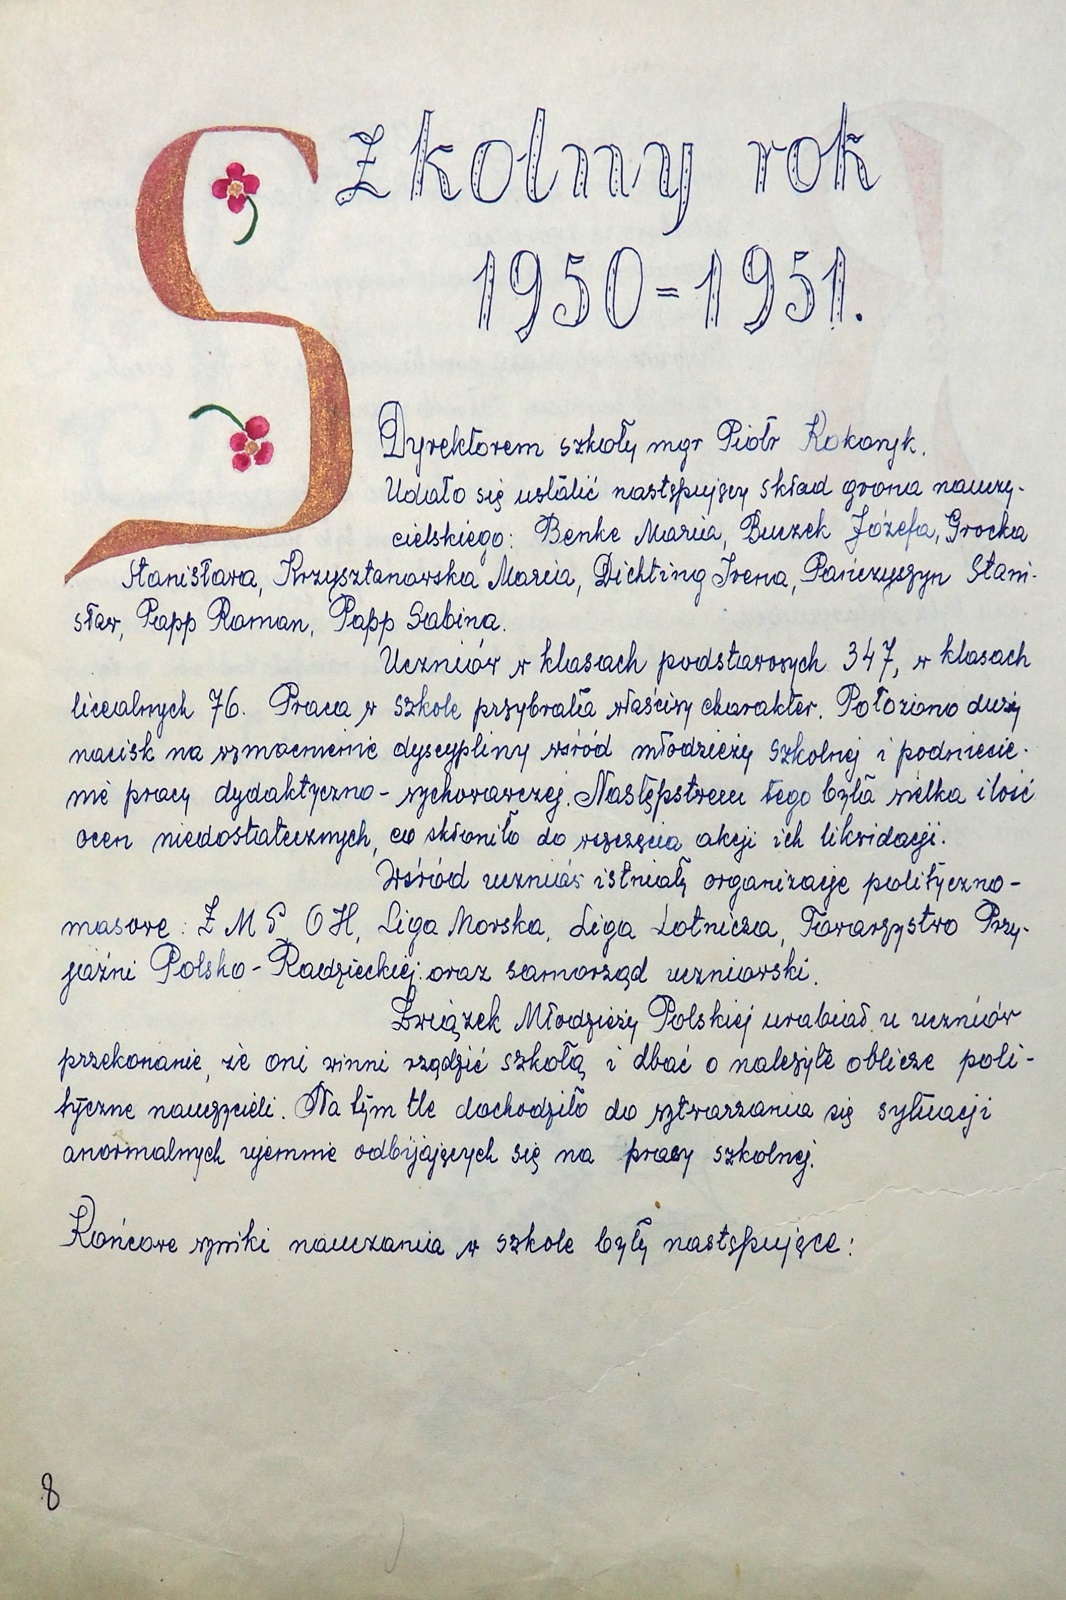 Szkolny rok
1950-1951.
Dyrektorem szkoły mgr Piotr Kokoryk.
Udało się ustalić następujący skład grona nauczy-
cielskiego: Benke Maria, Buczek Józefa, Grocka
Stanisława, Krzysztanowska Maria, Dichting Irena, Pańczyszyn Stani-
sław, Papp Roman, Papp Sabina.
Uczniów w klasach podstawowych 347, w klasach
licealnych 76. Praca w szkole przybrała właściwy charakter. Położono duży
nacisk na wzmocnienie dyscypliny wśród młodzieży szkolnej i podniesie-
nie pracy dydaktyczno-wychowawczej. Następstwem tego była wielka ilość
ocen niedostatecznych, co skłoniło do wszczęcia akcji ich likwidacji.
Wśród uczniów istniały organizacje polityczno-
masowe: ZMP, OH, Liga Morska, Liga Lotnicza, Towarzystwo Przy-
jaźni Polsko-Radzieckiej oraz samorząd uczniowski.
Związek Młodzieży Polskiej urabiał u uczniów
przekonanie, że oni winni rządzić szkołą i dbać o należyte oblicze poli-
tyczne nauczycieli. Na tym tle dochodziło do wytwarzania się sytuacji
anormalnych ujemnie odbijających się na pracy szkolnej.
Końcowe wyniki nauczania w szkole były następujące:
8